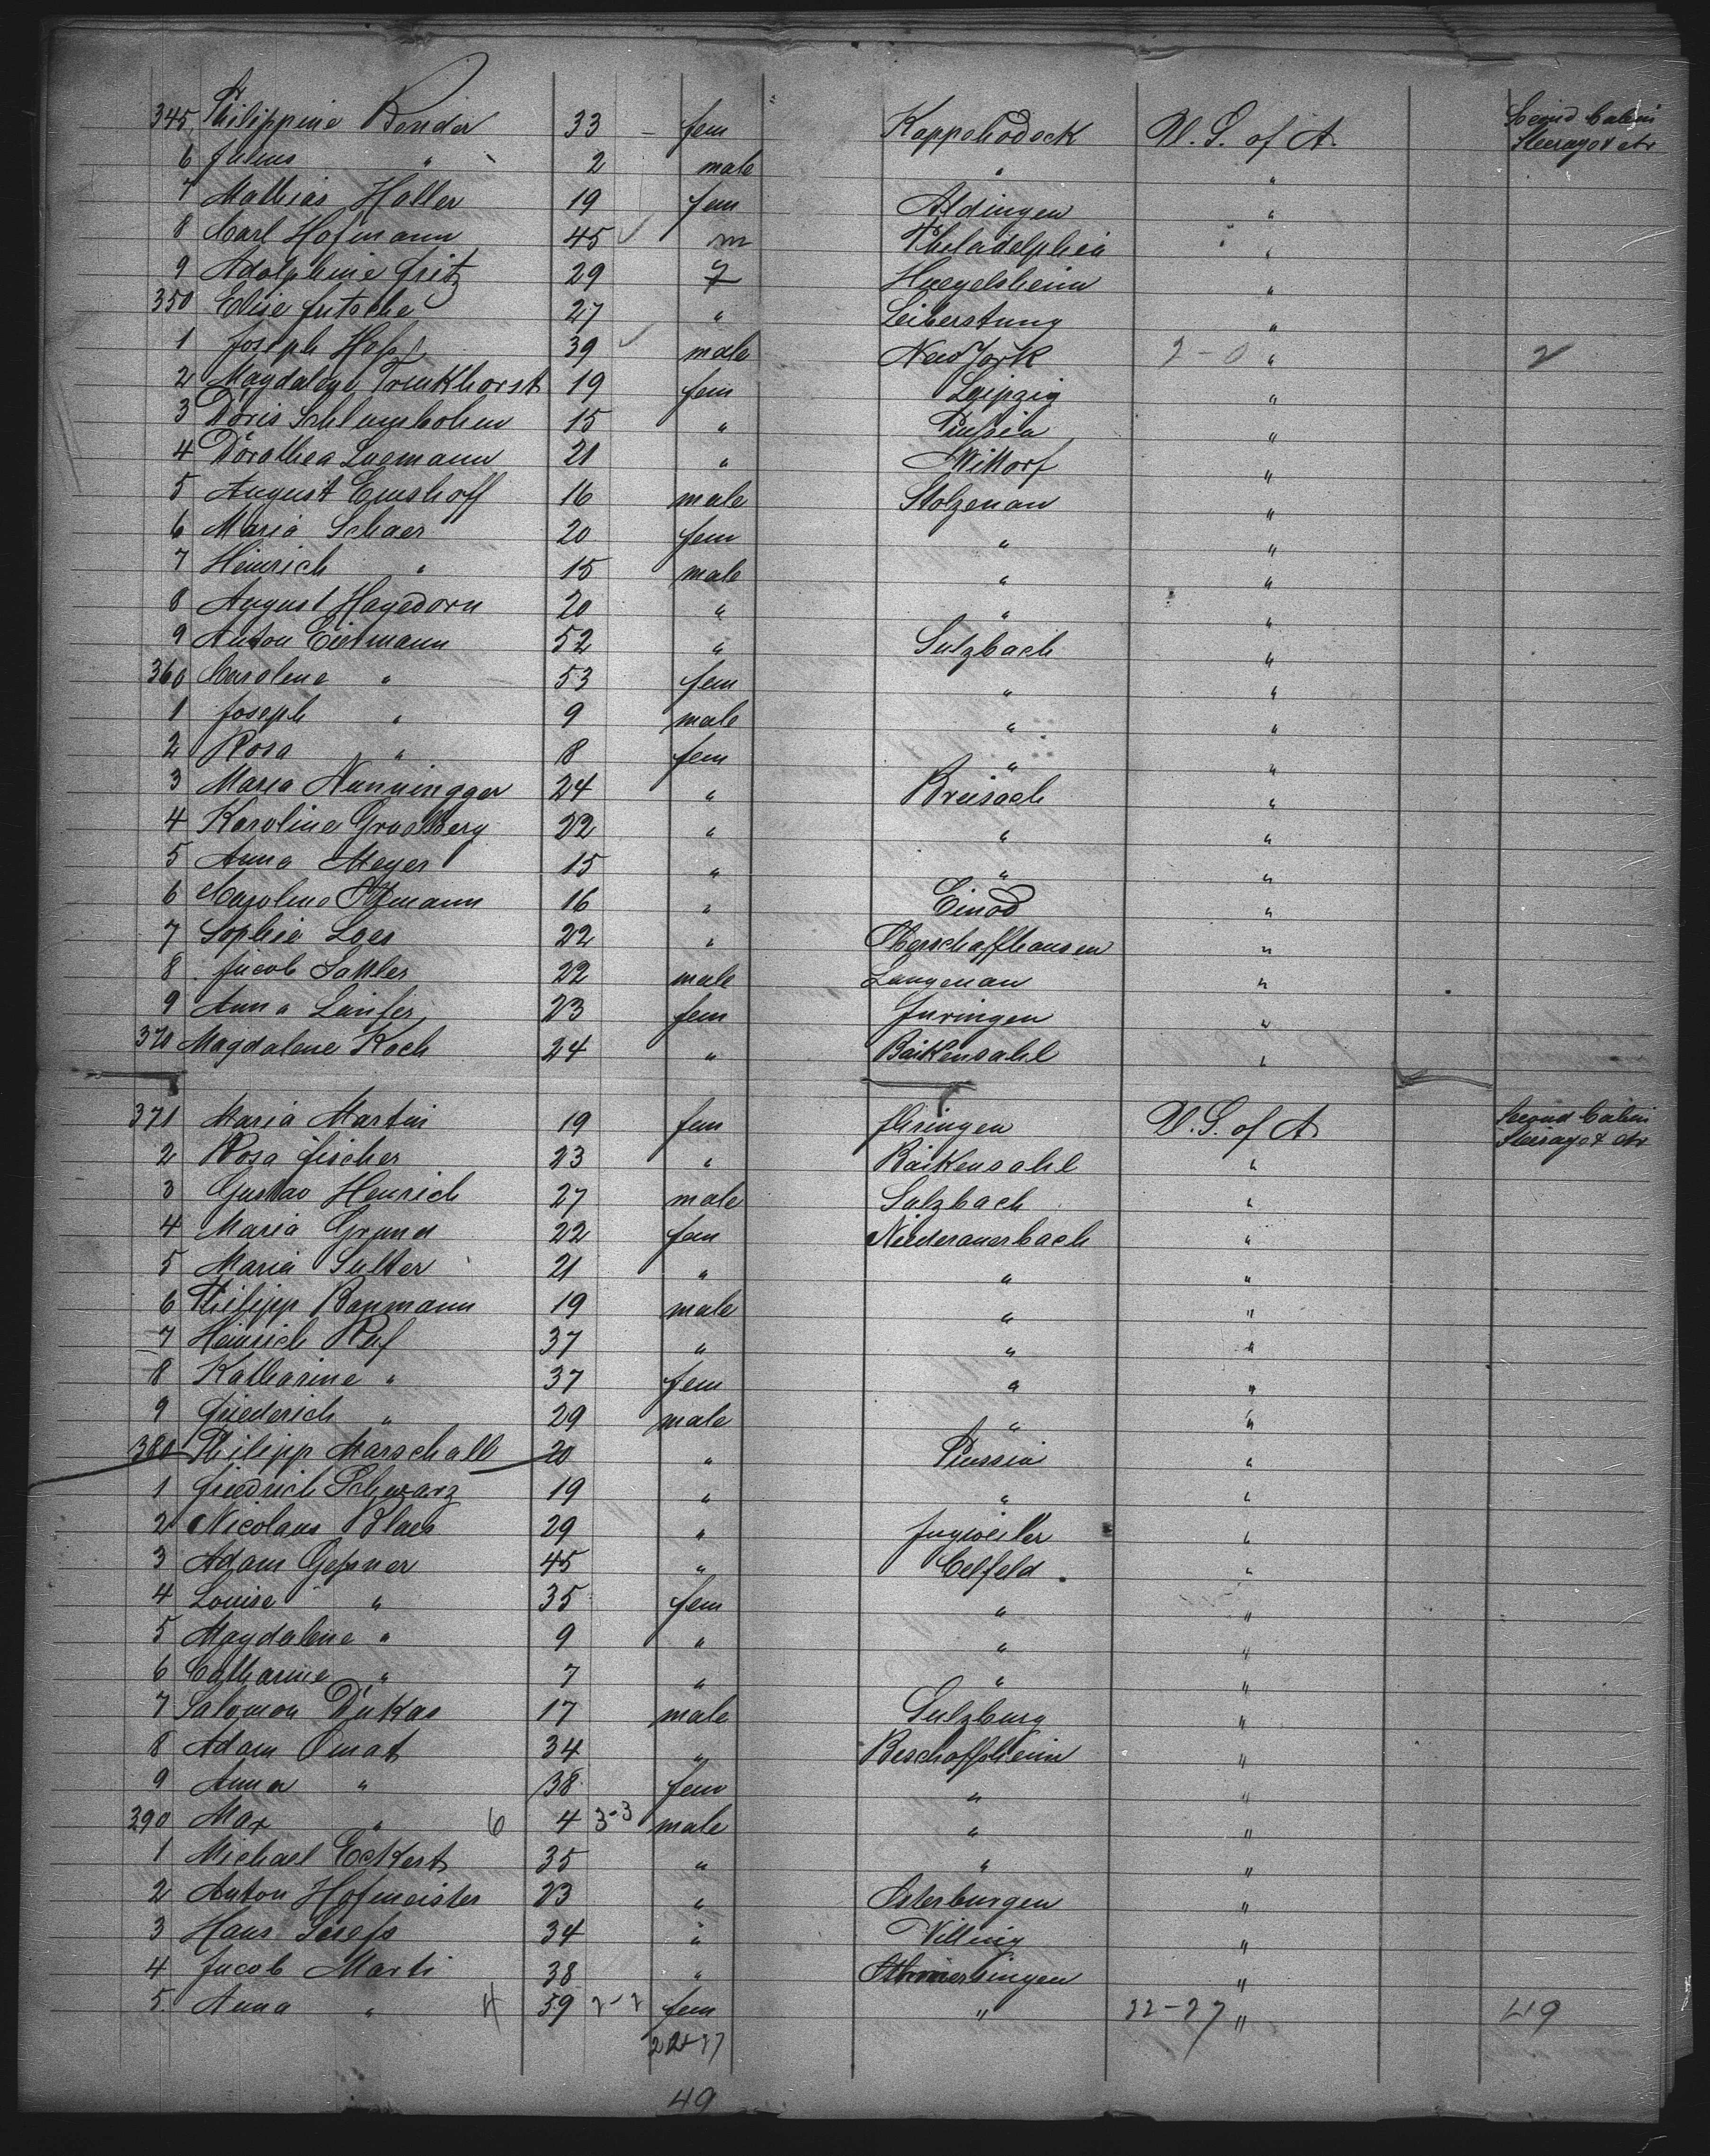 345 Philippine Bender 33 – fem Kappelrodeck U. S. of A. Second Cabin
6 Julius " 2 male " " Steerage & etr
7 Mathias Haller 19 fem Aldingen "
8 Carl Hofmann 45 ✓ m Philadelphia "
9 Adolphine Fritz 29 f Huegelsheim "
350 Elise Fritsche 27 " Leiberstung "
1 Joseph Hess 39 ✓ male New York 2-0 " 2
2 Magdalene Trenkhorst 19 fem Leipzig "
3 Doris 15 " Prussia "
4 Dorathea Luemann 21 " Wittorf "
5 August Emshoff 16 male Stolzenau "
6 Maria Schaer 20 fem " "
7 Heinrich " 15 male " "
8 August Hagedorn 20 " " "
9 Anton Eiermann 52 " Sulzbach "
360 Carolena " 53 fem " "
1 Joseph " 9 male " "
2 Rosa " 8 fem " "
3 Maria Nunningger 24 " Breisach "
4 Karoline 22 " " "
5 Anna Meyer 15 " " "
6 Caroline 16 " Einod "
7 Sophie Loes 22 " Oberschaffhausen "
8 Jacob Sattler 22 male Langenau "
9 Anna 23 fem Juringen "
370 Magdalene Koch 24 " Baikensahl "
371 Maria Martin 19 fem U. S. of A. Second Cabin
2 Rosa Fischer 23 " Raikensahl " Steerage & etr
3 Gustav Henrich 27 male Sulzbach "
4 Maria Grund 22 fem Niederauerbach "
5 Maria Sulter 21 " " "
6 Philipp Baumann 19 male " "
7 Heinrich Ruf 37 " " "
8 Katharine " 37 fem " "
9 Friederich " 29 male " "
380 Philipp Marschall 20 " Prussia "
1 Friedrich Schwarz 19 " " "
2 Nicolaus Blaes 29 " Jugweiler "
3 Adam Gessner 45 " Celfeld "
4 Louise " 35 fem " "
5 Magdalene " 9 " " "
6 Catharine " 7 " " "
7 Salomon Dukas 17 male Sulzburg "
8 Adam Omat 34 " Beschoffsheim "
9 Anna " 38 fem " "
390 Max " 6 4 3-3 male " "
1 Michael Eckert 35 " " "
2 Anton Hofmeister 23 " Osterburgen "
3 Hans 34 " Villing "
4 Jacob Marti 38 " "
5 Anna " 4 59 2-2 fem " 22-27 " 49
22-27
49